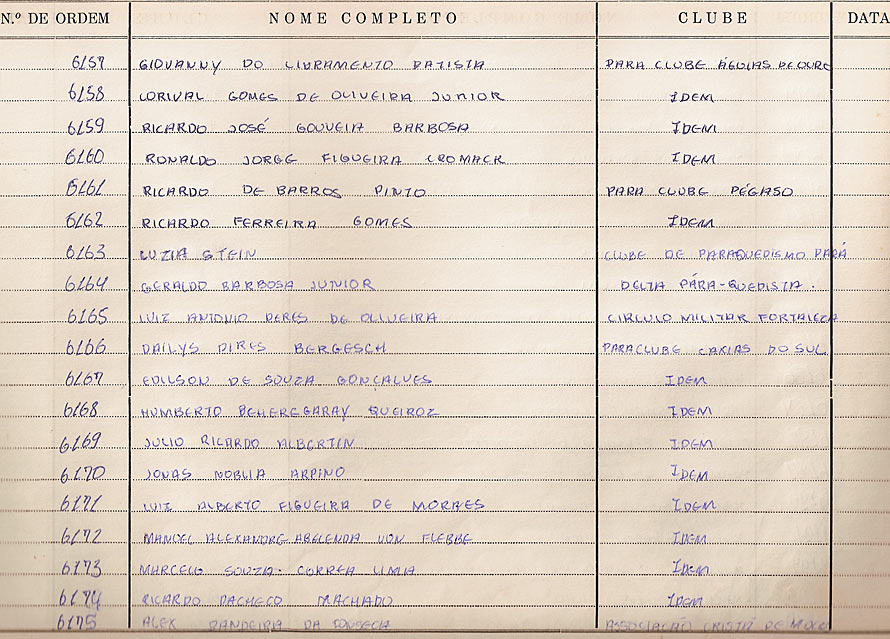 N.º DE ORDEM NOME COMPLETO CLUBE DATA
6157 GIOVANNY DO LIVRAMENTO BATISTA PARA CLUBE ÁGUIAS DE OURO
6158 LORIVAL GOMES DE OLIVEIRA JUNIOR IDEM
6159 RICARDO JOSÉ GOUVEIA BARBOSA IDEM
6160 RONALDO JORGE FIGUEIRA CROMACK IDEM
6161 RICARDO DE BARROS PINTO PARA CLUBE PÉGASO
6162 RICARDO FERREIRA GOMES IDEM
6163 LUZIA STEIN CLUBE DE PARAQUEDISMO PARÁ
6164 GERALDO BARBOSA JUNIOR DELTA PÁRA-QUEDISTA.
6165 LUIZ ANTONIO PERES DE OLIVEIRA CIRCULO MILITAR FORTALEZA
6166 DAILYS PIRES BERGESCH PARACLUBE CAXIAS DO SUL
6167 EDILSON DE SOUZA GONÇALVES IDEM
6168 HUMBERTO BEHEREGARAY QUEIROZ IDEM
6169 JULIO RICARDO ALBERTIN IDEM
6170 JONAS NOBLIA ARPINO IDEM
6171 LUIZ ALBERTO FIGUEIRA DE MORAES IDEM
6172 MANOEL ALEXANDRE ABELENDA VON FLEBBE IDEM
6173 MARCELO SOUZA CORREA LIMA IDEM
6174 RICARDO PACHECO MACHADO IDEM
6175 ALEX BANDEIRA DA FONSECA ASSOCIAÇÃO CRISTÃ DE MOÇOS